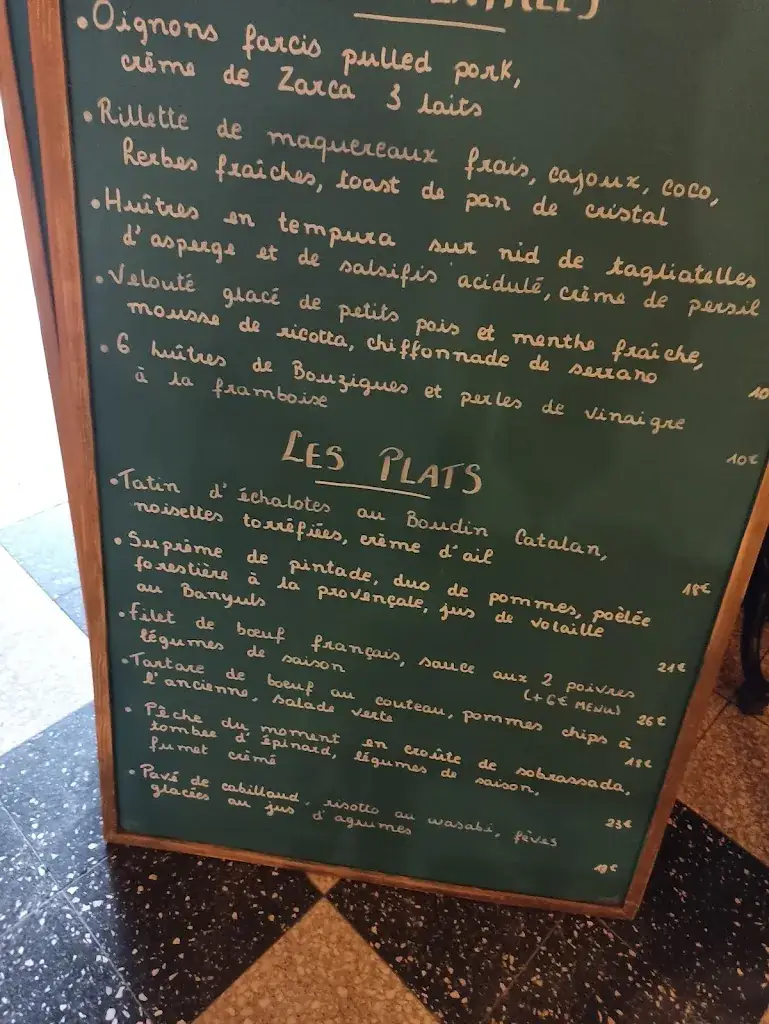 • Oignons farcis pulled pork,
crème de Zarca 3 laits
• Rillette de maquereaux frais, cajoux, coco,
herbes fraîches, toast de pan de cristal
• Huîtres en tempura sur nid de tagliatelles
d'asperge et de salsifis acidulé, crème de persil
• Velouté glacé de petits pois et menthe fraîche,
mousse de ricotta, chiffonnade de serrano
10
• 6 huîtres de Bouzigues et perles de vinaigre
à la framboise
10€
LES PLATS
• Tatin d'échalotes au Boudin Catalan,
noisettes torréfiées, crème d'ail
18€
• Suprême de pintade, duo de pommes, poêlée
forestière à la provençale, jus de volaille
au Banyuls
21€
• Filet de bœuf français, sauce aux 2 poivres
légumes de saison (+6€ MENU) 26€
• Tartare de bœuf au couteau, pommes chips à
l'ancienne, salade verte 18€
• Pêche du moment en croûte de sobrassada,
tombée d'épinard, légumes de saison,
fumet crémé
23€
• Pavé de cabillaud, risotto au wasabi, fèves
glacées au jus d'agrumes
19€